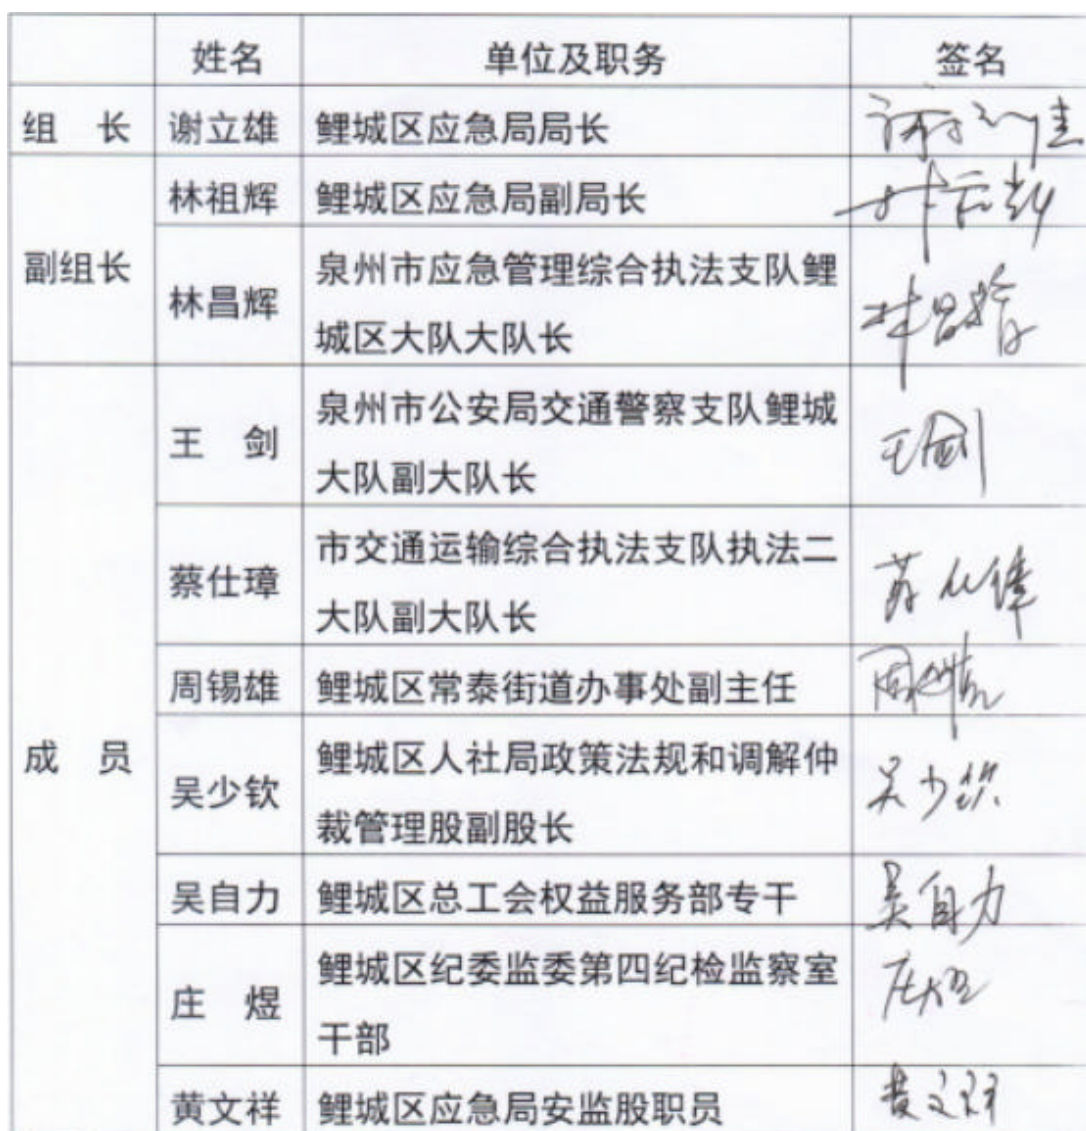 姓名 单位及职务 签名
组 长 谢立雄 鲤城区应急局局长 谢立雄
副组长 林祖辉 鲤城区应急局副局长
林昌辉 泉州市应急管理综合执法支队鲤
城区大队大队长 林昌辉
成 员 王 剑 泉州市公安局交通警察支队鲤城
大队副大队长 王剑
蔡仕璋 市交通运输综合执法支队执法二
大队副大队长
周锡雄 鲤城区常泰街道办事处副主任
吴少钦 鲤城区人社局政策法规和调解仲
裁管理股副股长 吴少钦
吴自力 鲤城区总工会权益服务部专干 吴自力
庄 煜 鲤城区纪委监委第四纪检监察室
干部 庄煜
黄文祥 鲤城区应急局安监股职员 黄文祥